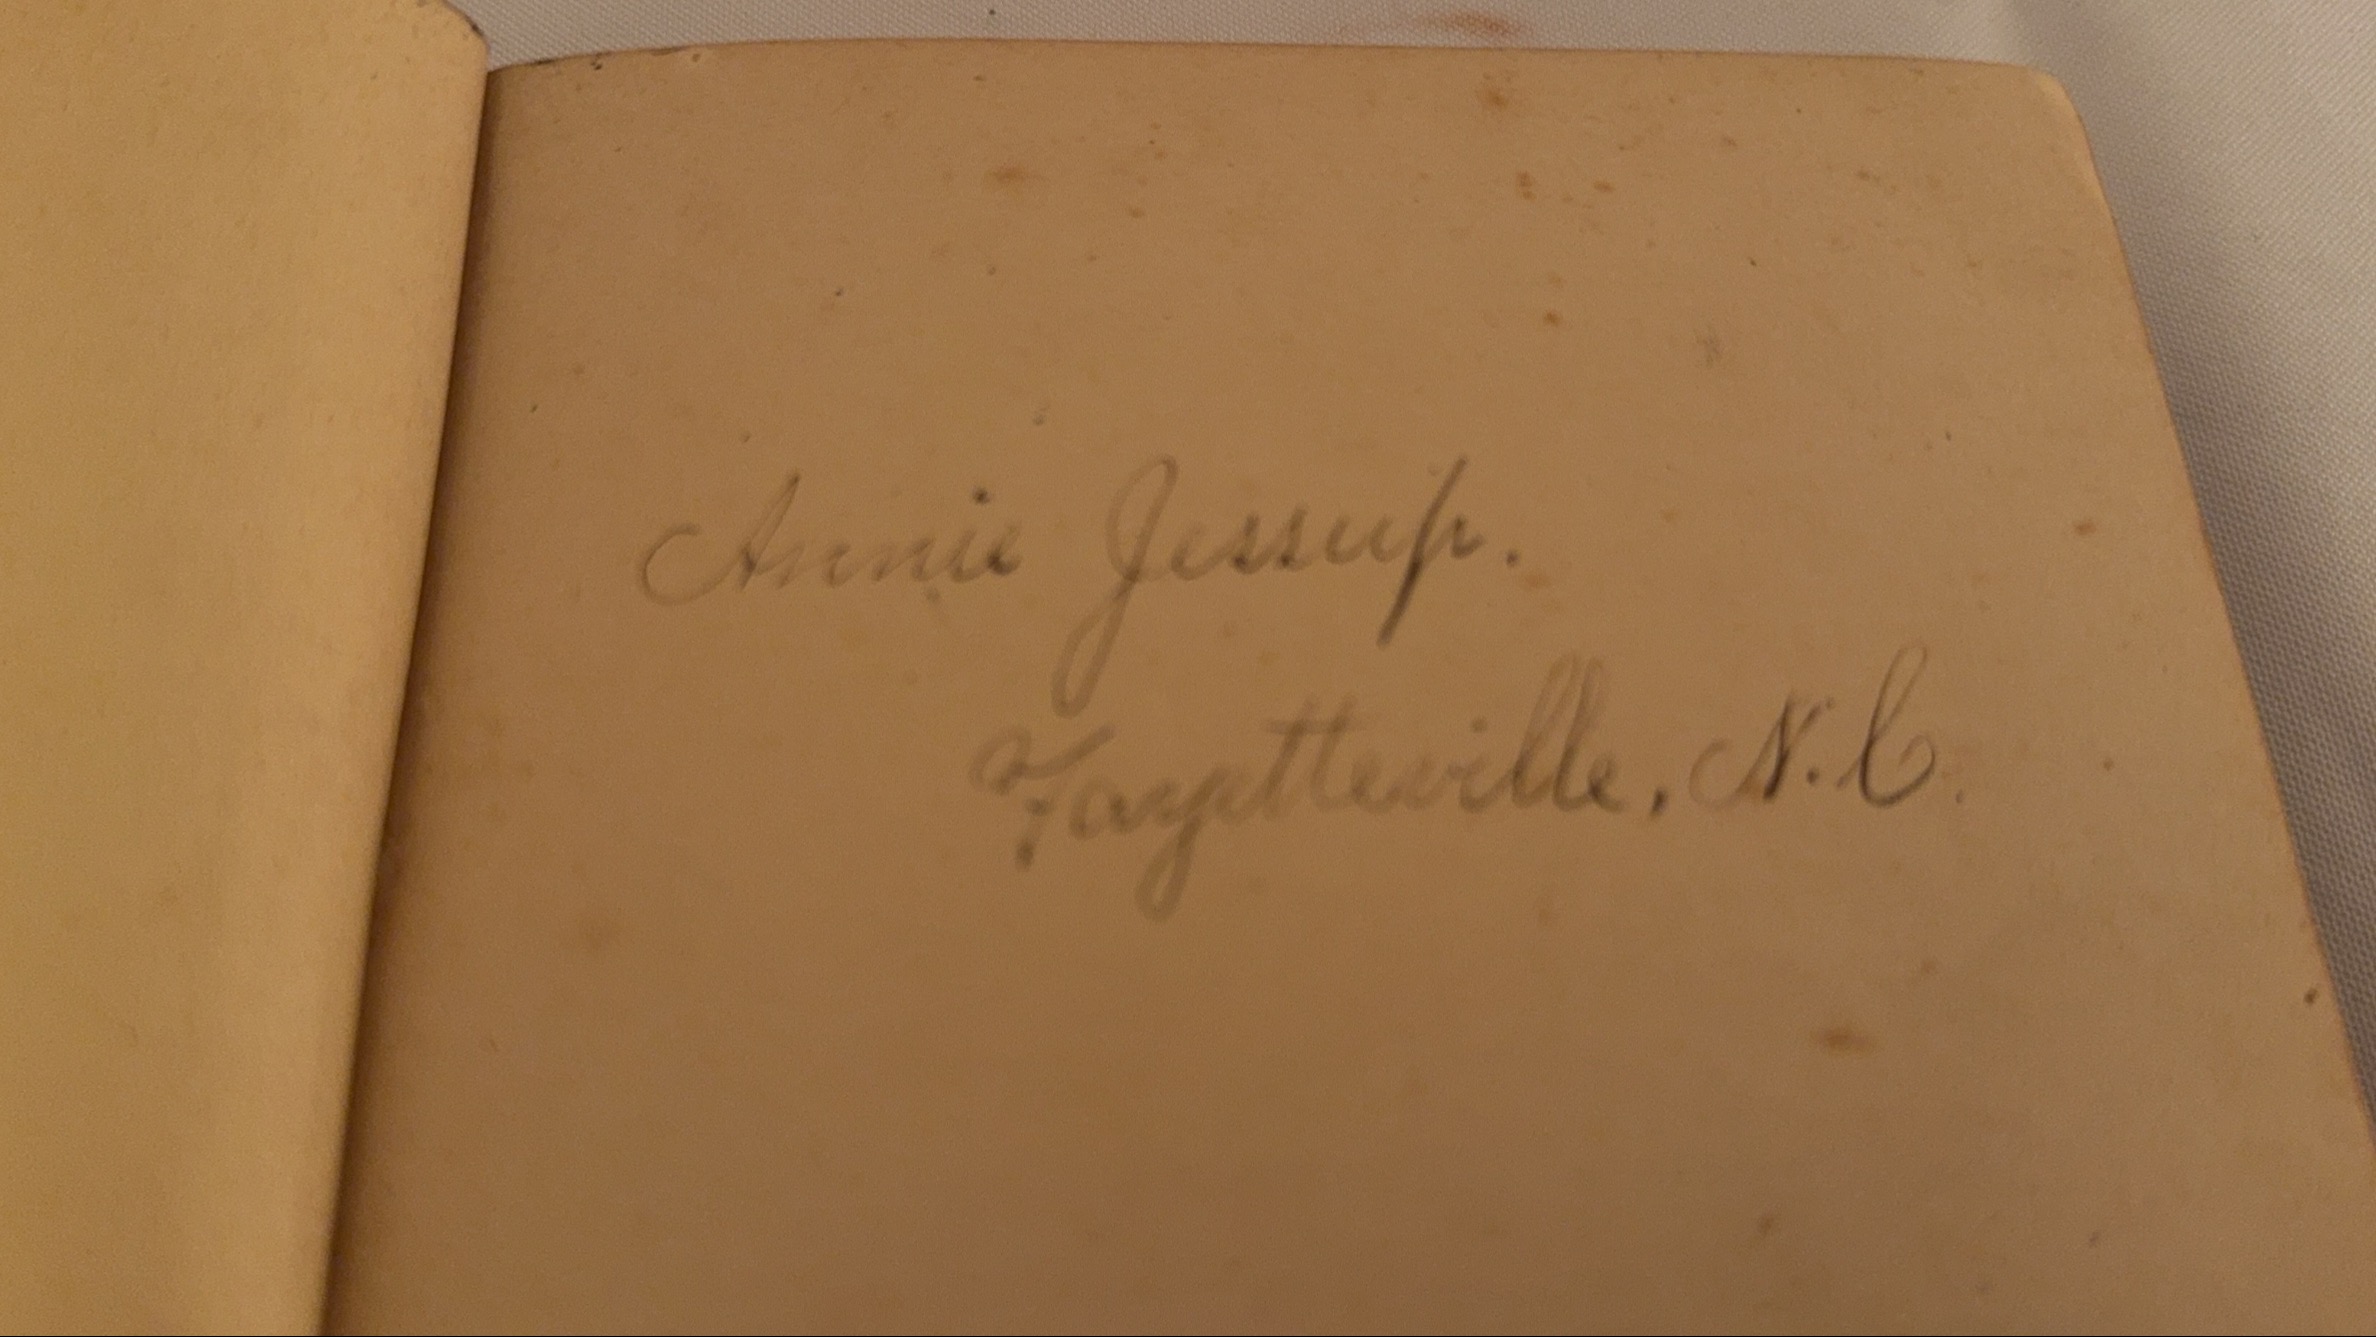 Annie Jessup.
Fayetteville, N.C.